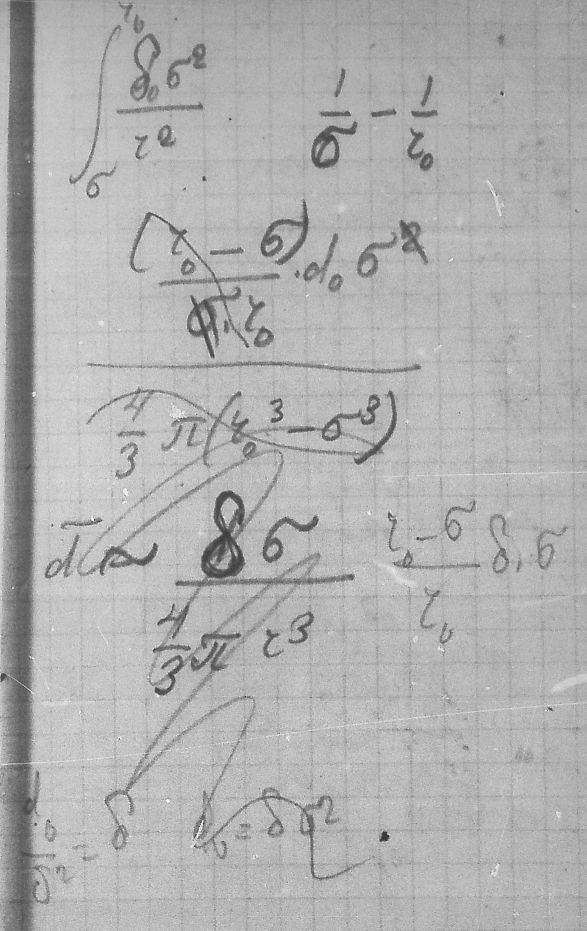 ∫_σ^{r₀} δ₀σ² / r²    1/σ − 1/r₀
(r₀ − σ) / (σ · r₀) · d₀ σ²
4/3 π (r₀³ − σ³)
d̄ ~ δσ / (4/3 π r³)    (r₀ − σ) / r₀ δ, σ
d₀ / σ² = δ    d₀ = δσ²